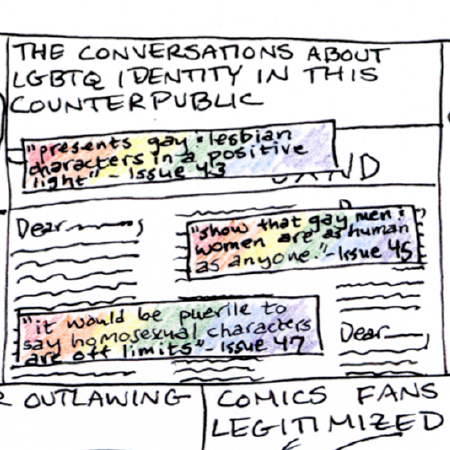 THE CONVERSATIONS ABOUT
LGBTQ IDENTITY IN THIS
COUNTERPUBLIC
"presents gay & lesbian
characters in a positive
light" - Issue 43
Dear
"show that gay men &
women are as human
as anyone." - Issue 45
"it would be puerile to
say homosexual characters
are off limits" - Issue 47
Dear
OUTLAWING
COMICS FANS
LEGITIMIZED